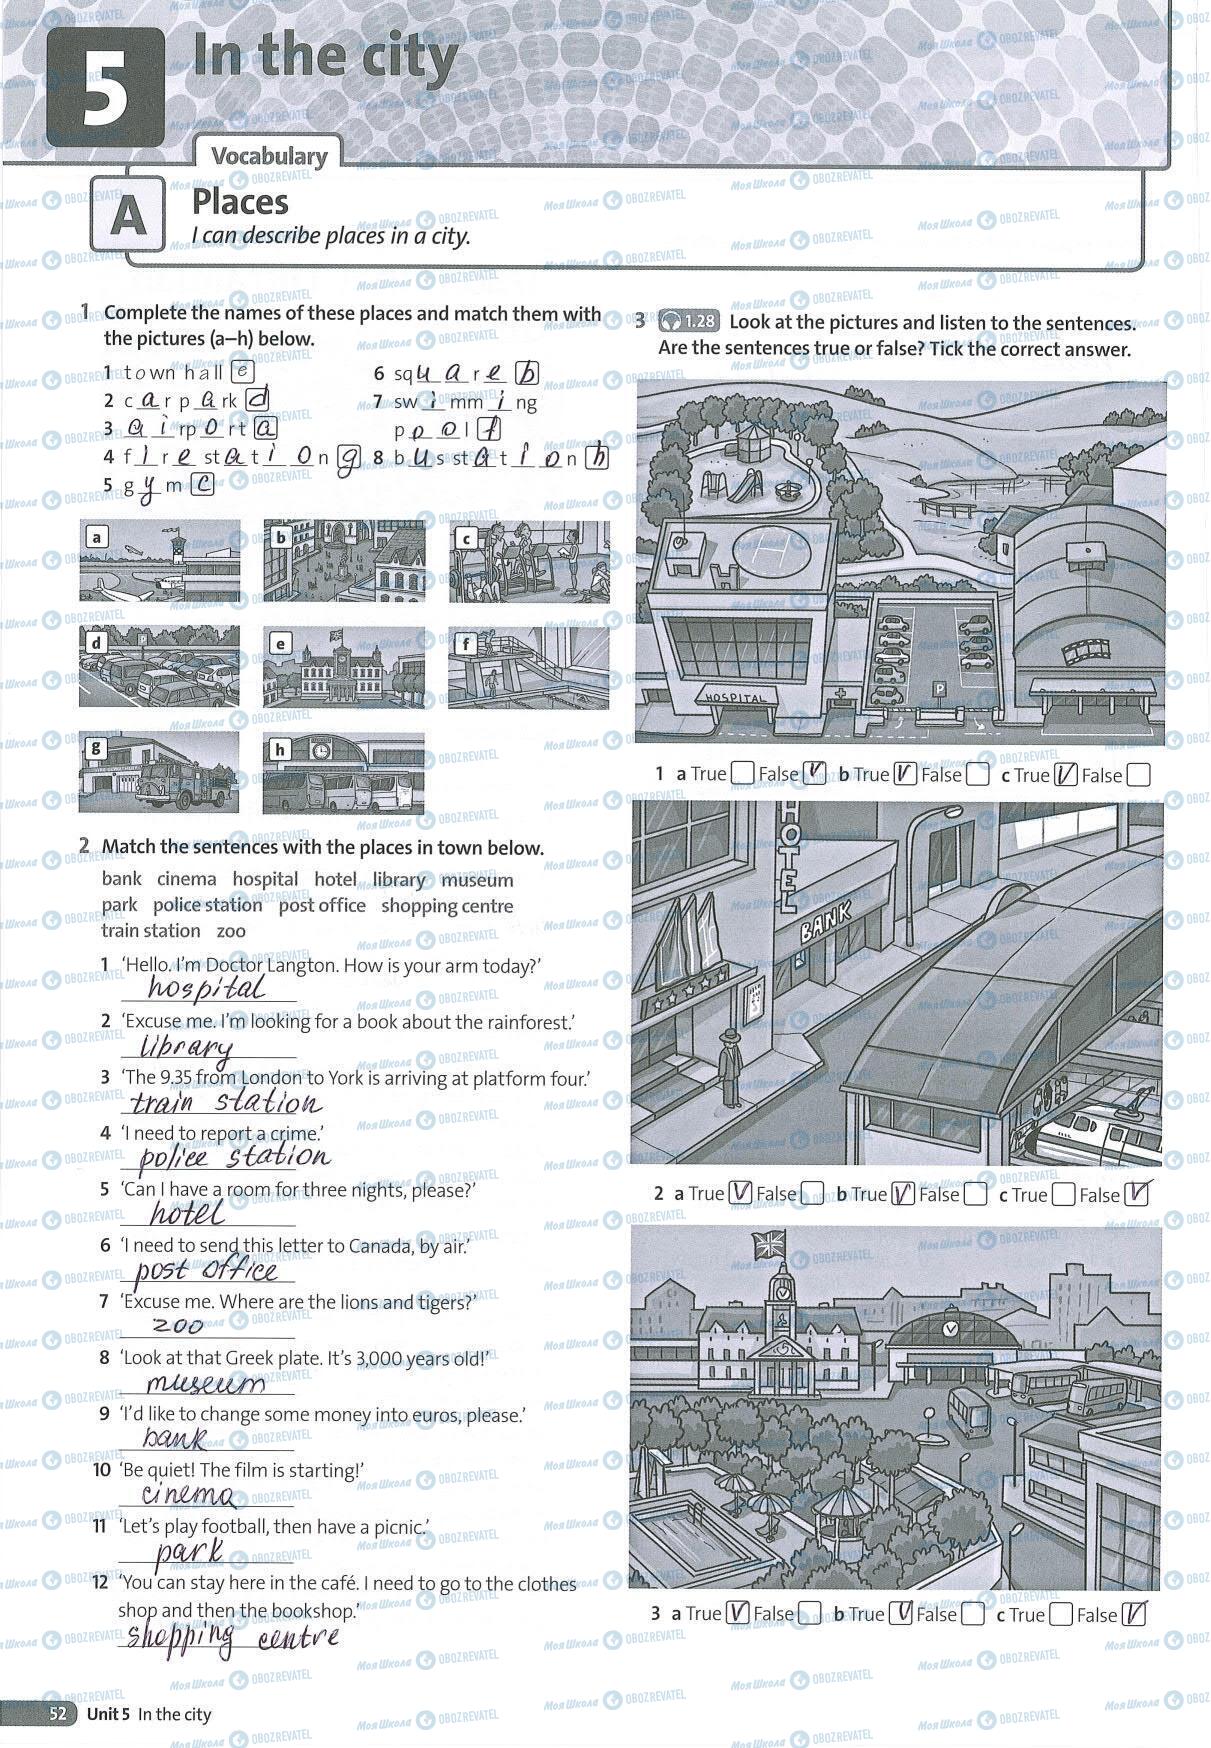 5
In the city
Vocabulary
A
Places
I can describe places in a city.
1 Complete the names of these places and match them with
the pictures (a–h) below.
1 town hall e
2 car park d
3 airport a
4 fire station g
5 gym c
6 square b
7 swimming
pool f
8 bus station h
a
b
c
d
e
f
g
h
2 Match the sentences with the places in town below.
bank cinema hospital hotel library museum
park police station post office shopping centre
train station zoo
1 ‘Hello. I’m Doctor Langton. How is your arm today?’
hospital
2 ‘Excuse me. I’m looking for a book about the rainforest.’
library
3 ‘The 9.35 from London to York is arriving at platform four.’
train station
4 ‘I need to report a crime.’
police station
5 ‘Can I have a room for three nights, please?’
hotel
6 ‘I need to send this letter to Canada, by air.’
post office
7 ‘Excuse me. Where are the lions and tigers?’
zoo
8 ‘Look at that Greek plate. It’s 3,000 years old!’
museum
9 ‘I’d like to change some money into euros, please.’
bank
10 ‘Be quiet! The film is starting!’
cinema
11 ‘Let’s play football, then have a picnic.’
park
12 ‘You can stay here in the café. I need to go to the clothes
shop and then the bookshop.’
shopping centre
3 1.28 Look at the pictures and listen to the sentences.
Are the sentences true or false? Tick the correct answer.
HOSPITAL
P
1 a True False V b True V False c True V False
HOTEL
BANK
2 a True V False b True V False c True False V
3 a True V False b True V False c True False V
52 Unit 5 In the city
Моя Школа OBOZREVATEL